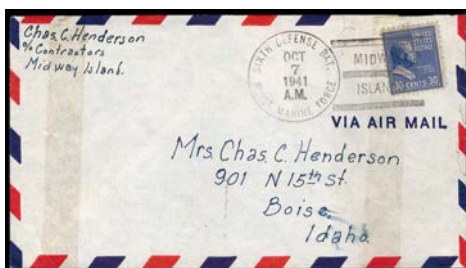 Chas. C. Henderson
% Contractors
Midway Island.
SIXTH DEFENSE BAT.
FLEET MARINE FORCE
OCT
7
1941
A.M.
MIDWAY
ISLAND
UNITED STATES POSTAGE
30 CENTS 30
VIA AIR MAIL
Mrs. Chas. C. Henderson
901 N 15th St.
Boise.
Idaho.